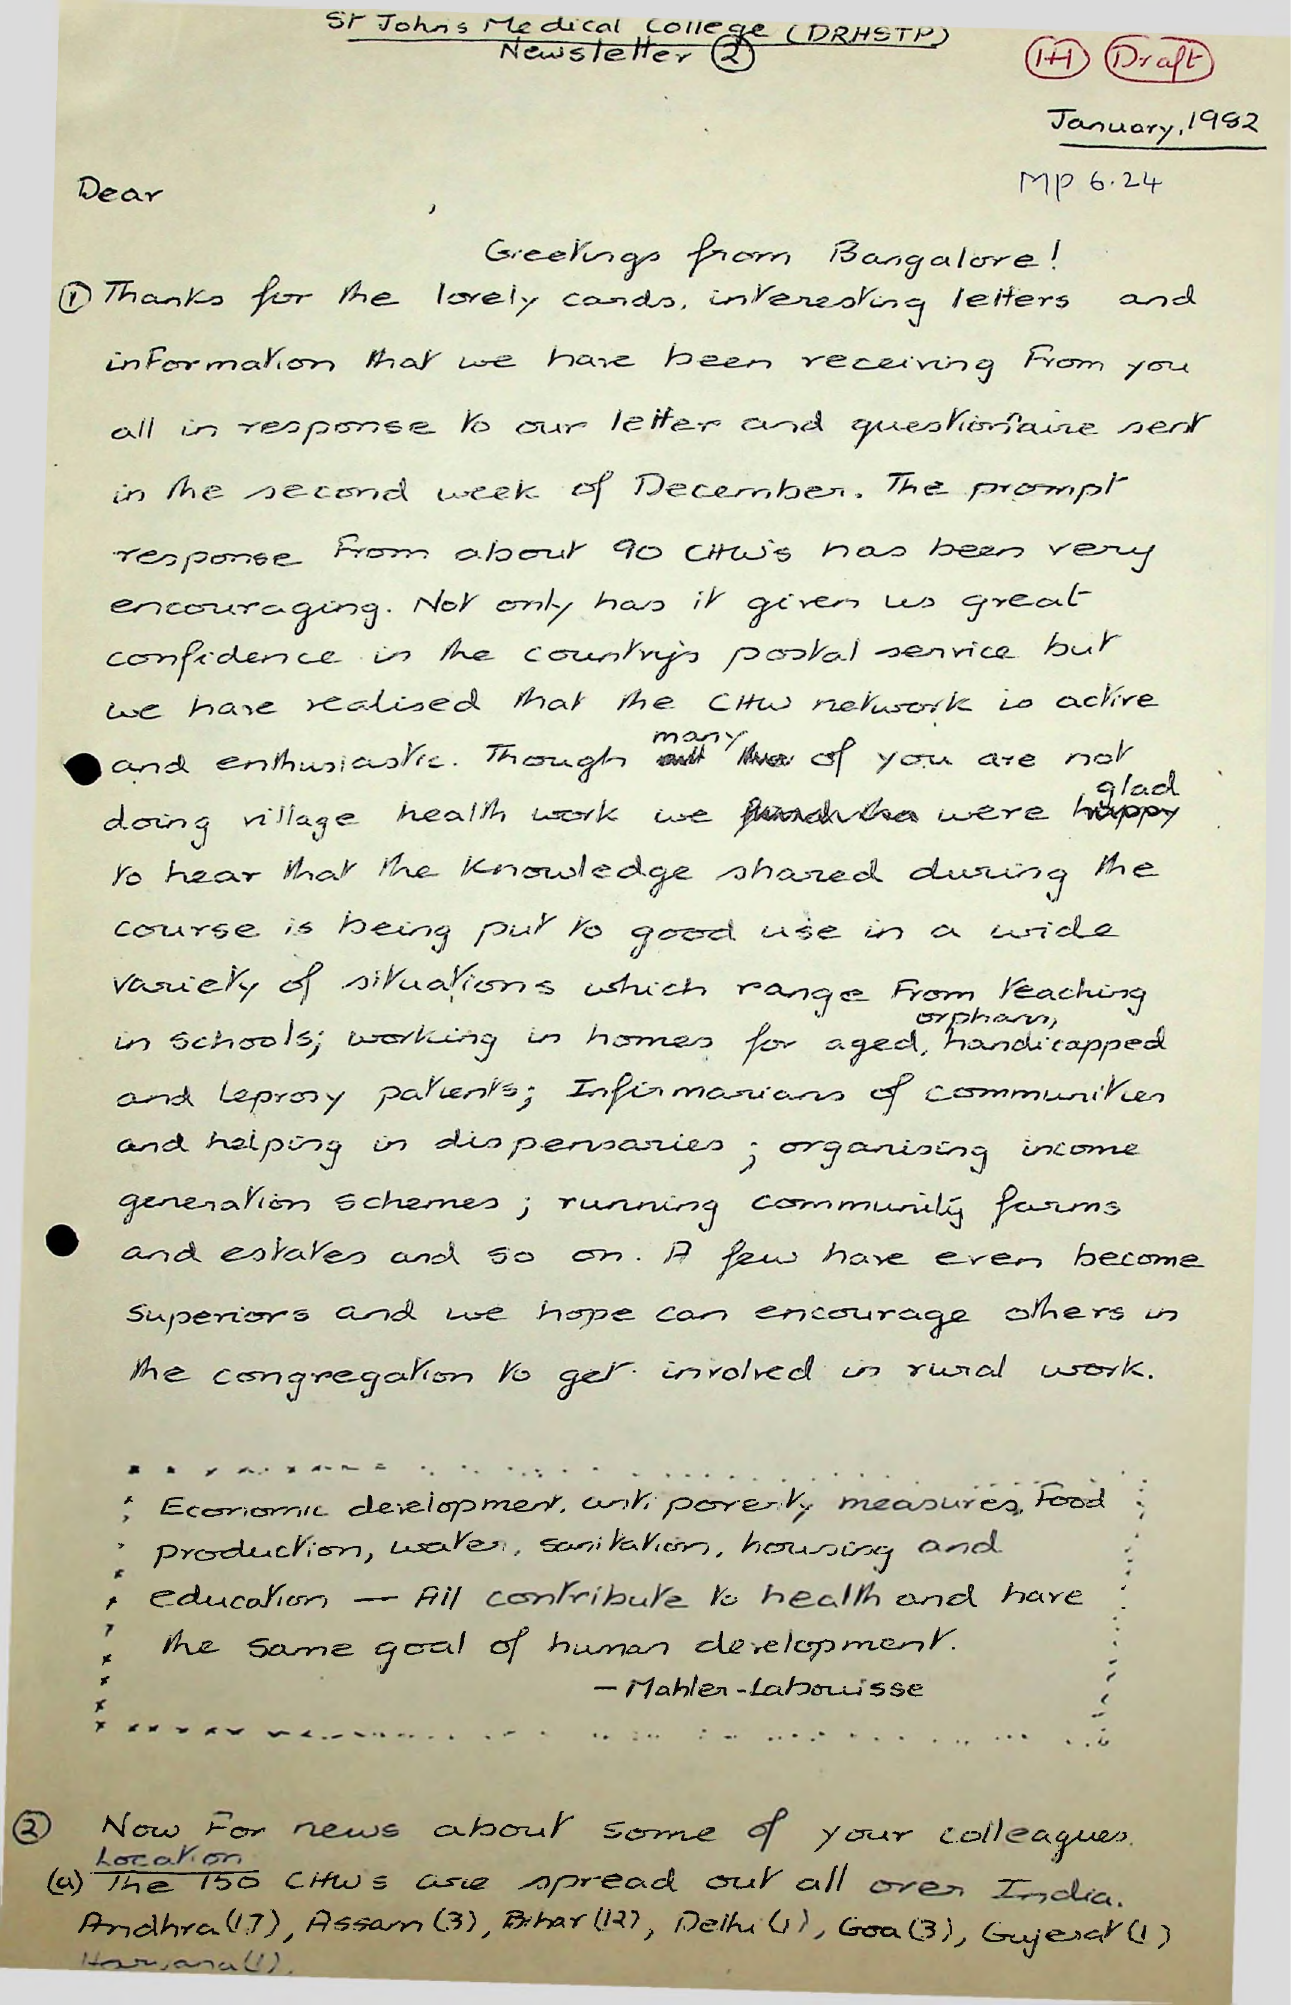 St John's Medical College (DRHSTP)
Newsletter (2)
1+1 Draft
January, 1982
MP 6.24
Dear ,
Greetings from Bangalore!
(1) Thanks for the lovely cards, interesting letters and
information that we have been receiving from you
all in response to our letter and questionnaire sent
in the second week of December. The prompt
response from about 90 CHW's has been very
encouraging. Not only has it given us great
confidence in the country's postal service but
we have realised that the CHW network is active
many
and enthusiastic. Though of you are not
glad
doing village health work we were happy
to hear that the knowledge shared during the
course is being put to good use in a wide
variety of situations which range from teaching
orphans,
in schools; working in homes for aged, handicapped
and leprosy patients; Infirmarians of communities
and helping in dispensaries ; organising income
generation schemes ; running community farms
and estates and so on. A few have even become
superiors and we hope can encourage others in
the congregation to get involved in rural work.
Economic development, anti poverty measures, food
production, water, sanitation, housing and
education — All contribute to health and have
the same goal of human development.
— Mahler-Labouisse
(2) Now for news about some of your colleagues.
Location
(a) The 150 CHWs are spread out all over India.
Andhra (17), Assam (3), Bihar (12), Delhi (1), Goa (3), Gujerat (1)
Haryana (1),